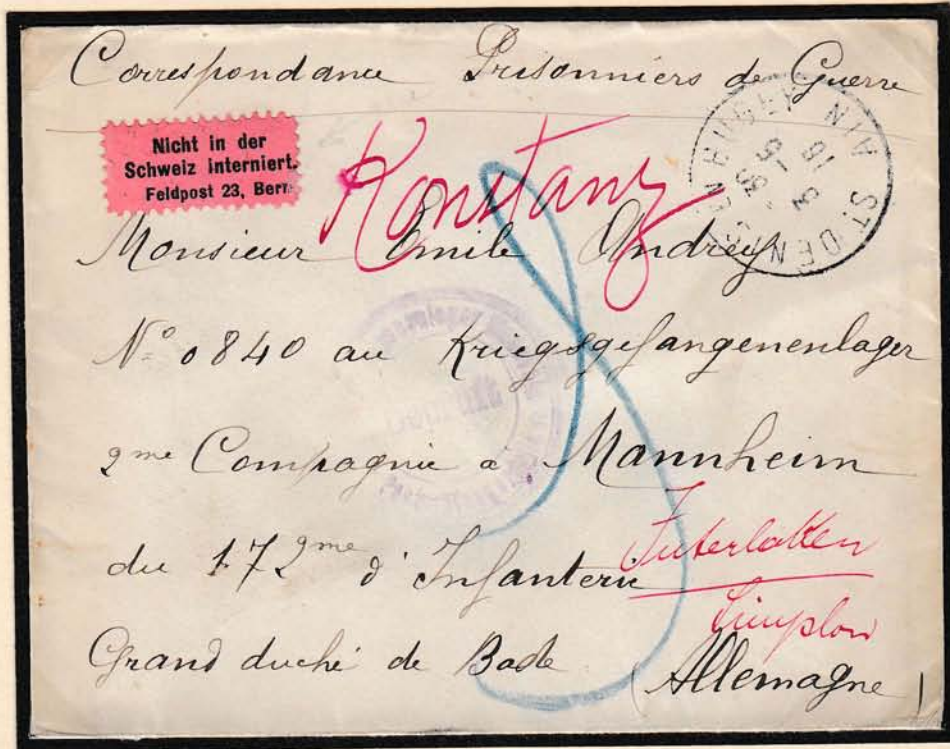 Correspondance Prisonniers de Guerre
Nicht in der
Schweiz interniert.
Feldpost 23, Bern
Konstanz
Monsieur Emile Andrey
N° 0840 au Kriegsgefangenenlager
2me Compagnie a Mannheim
du 172me d'Infanterie
Interlaken
Simplon
Grand duché de Bade (Allemagne)
8
ST DENIS EN BUGEY AIN